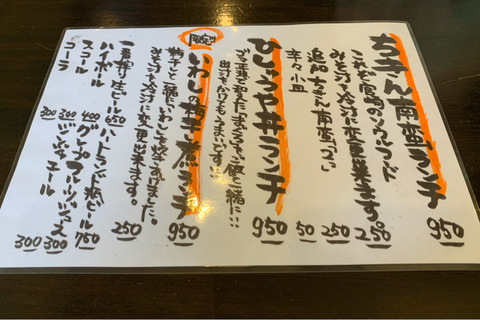 チキン南蛮ランチ 950
これぞ宮崎のソウルフード
みそ汁を冷汁に変更出来ます。 250
追加 チキン南蛮"1コ" 250
辛々小皿 50
ひゅうが丼ランチ 950
ゴマ正油で和えた"まぐろ"をご飯と一緒に…
出汁をかけてもうまいです!!
限定
いわしの梅干煮ランチ 950
梅干と一緒にいわしを炊きあげました。
みそ汁を冷汁に変更出来ます。 250
一番搾り生ビール 650
ハートランド瓶ビール 750
ハイボール 400
グレープフルーツジュース 300
スコール 300
ジンジャーエール 300
コーラ 300